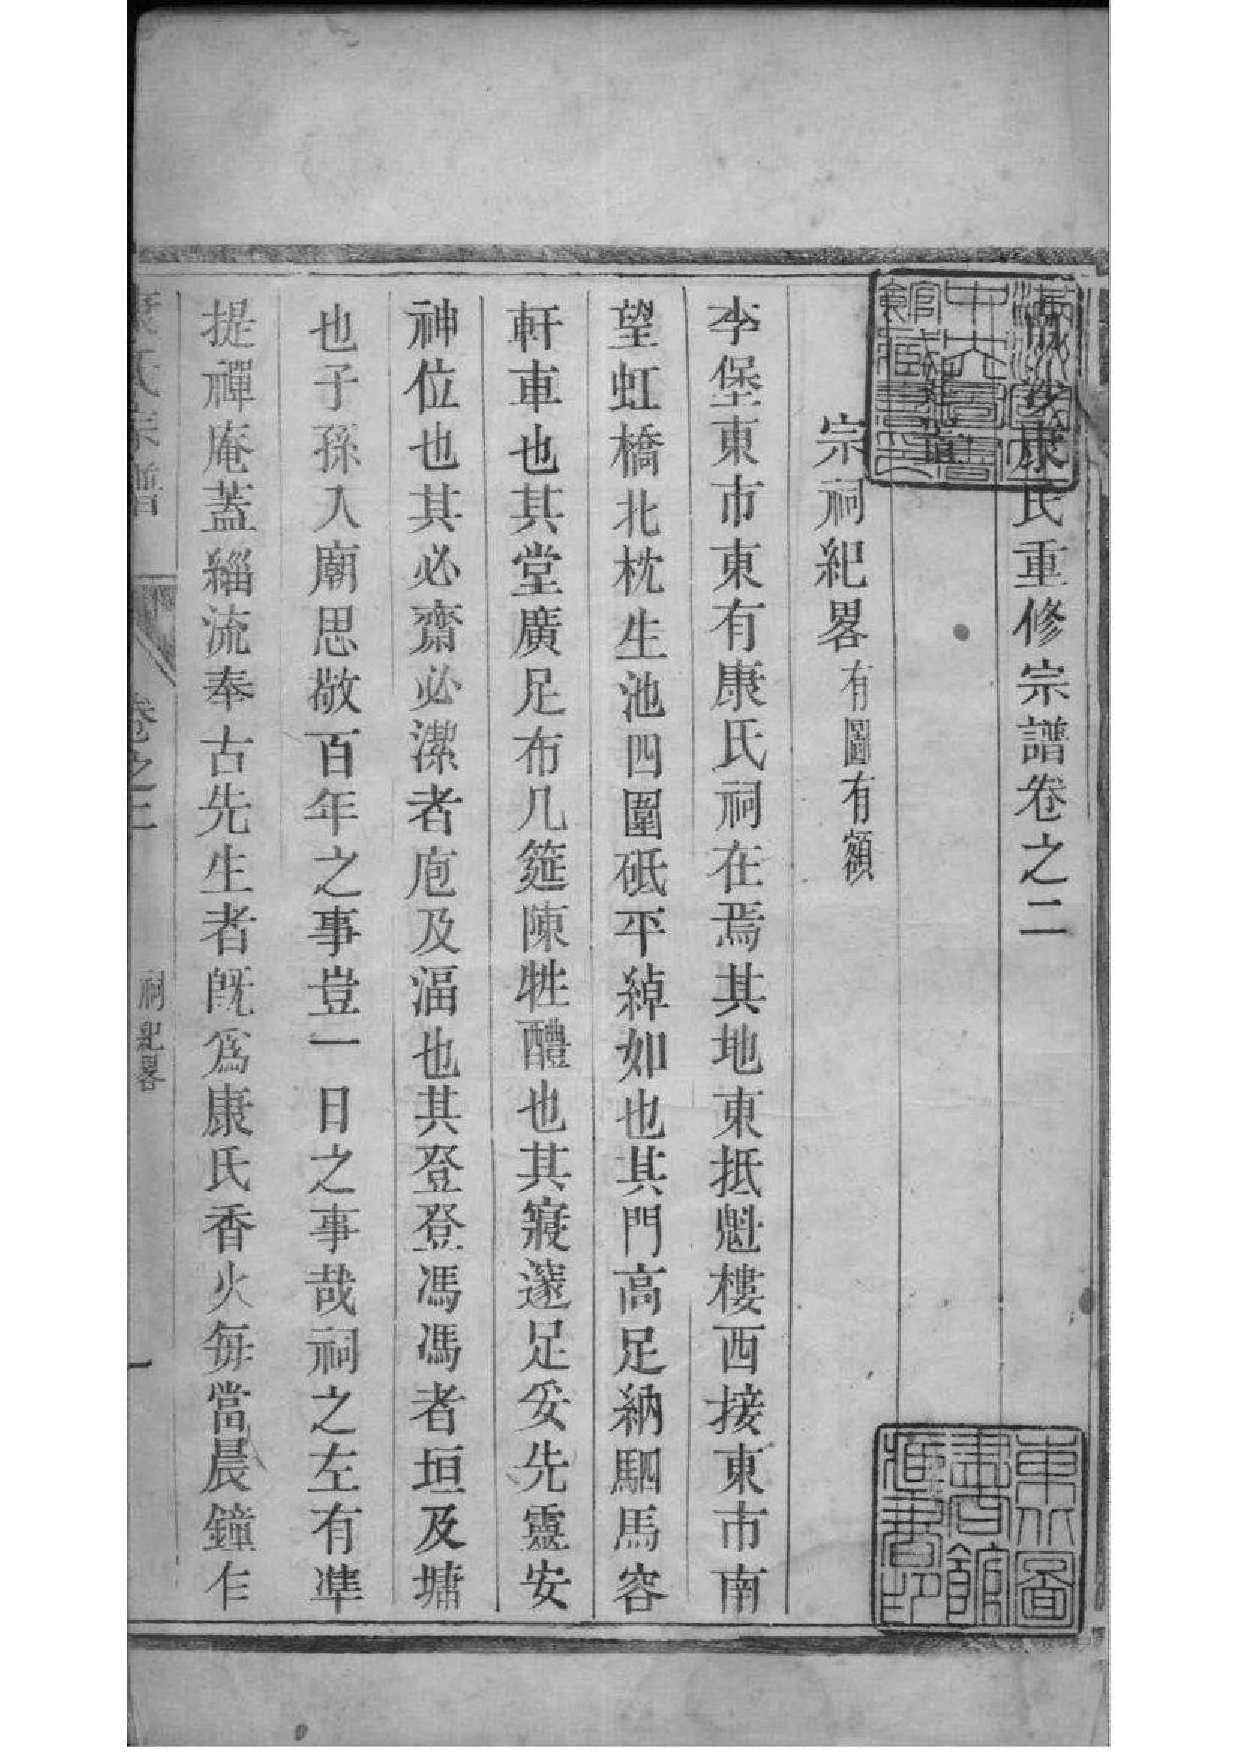 康氏重修宗譜卷之二
宗祠紀畧有圖有額
李堡東市東有康氏祠在焉其地東抵魁樓西接東市南
望虹橋北枕生池四圍砥平綽如也其門高足納駟馬容
軒車也其堂廣足布几筵陳牲醴也其寢邃足妥先靈安
神位也其必齋必潔者庖及湢也其登登馮馮者垣及墉
也子孫入廟思敬百年之事豈一日之事哉祠之左有準
提禪庵蓋緇流奉古先生者旣爲康氏香火每當晨鐘乍
康氏宗譜
卷之二
祠紀畧
一
東北圖
書館
藏書印